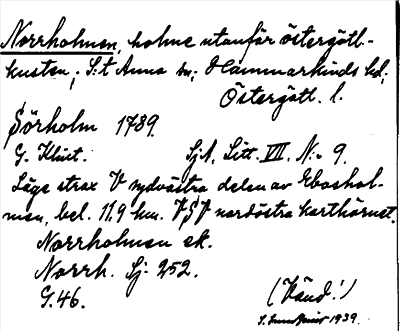 Norrholmen, holme utanför östergötl.-
kusten; S:t Anna sn; Hammarkinds hd;
Östergötl. l.
Sörholm 1789.
G. Klint. SjA, Litt. VIII. N:o 9.
Läge strax V sydvästra delen av Eboshol-
men, bel. 11.9 km. VSV nordöstra karthörnet.
Norrholmen ek.
Norrh. Sj. 252.
G.46. (Vänd!)
1939.